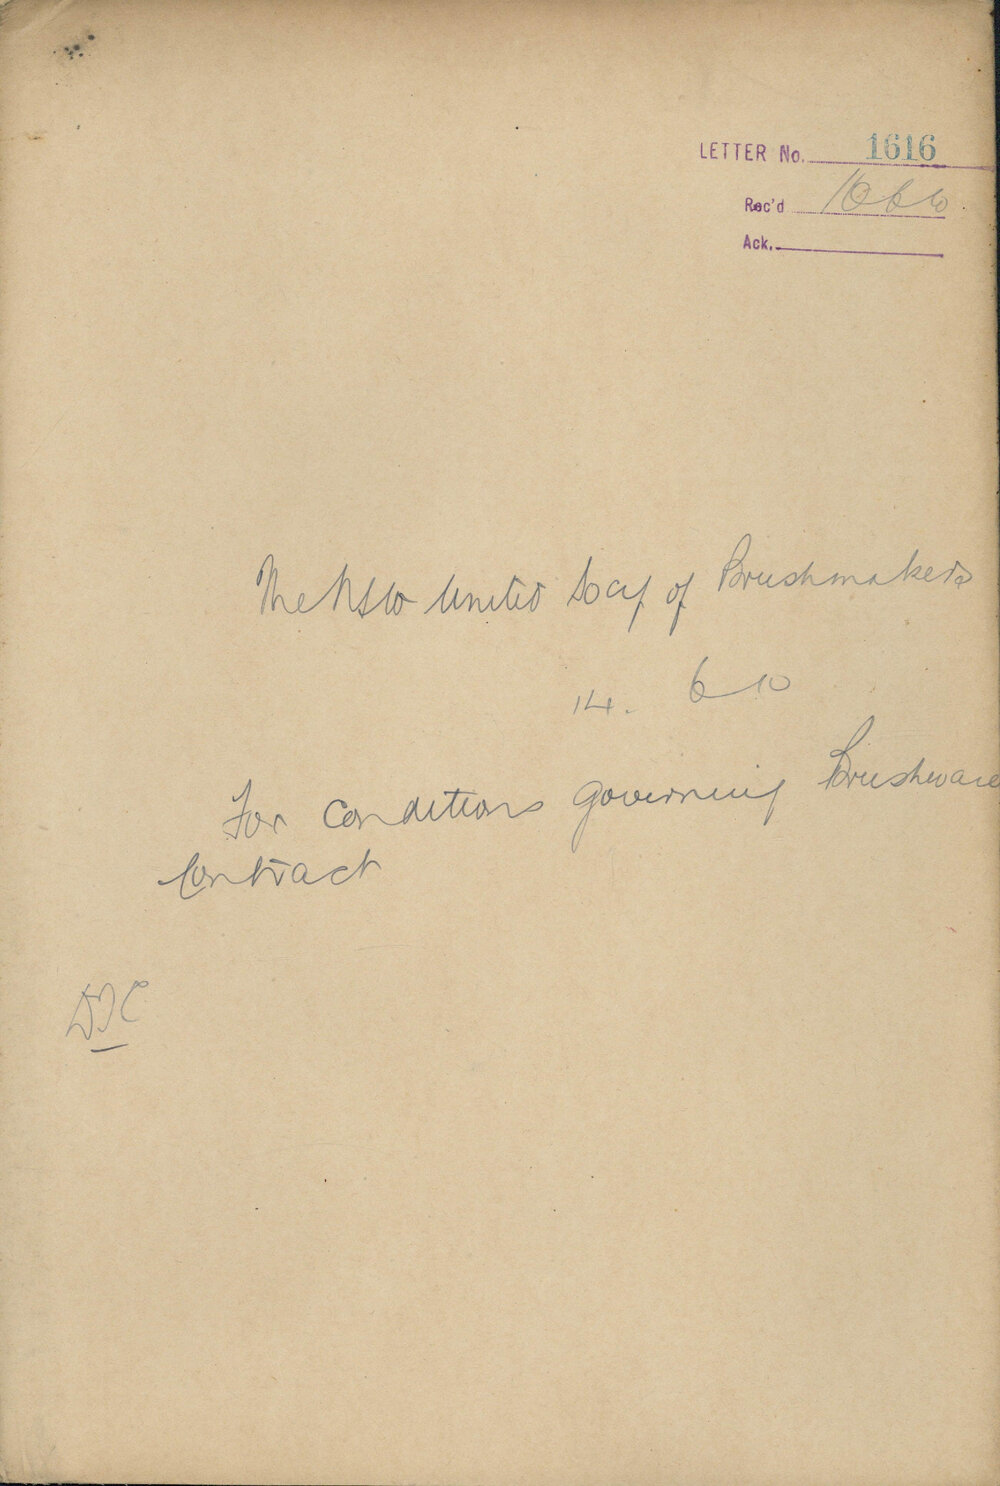 LETTER No. 1616
Rec'd 16 6 10
Ack.
The NSW United Socy of Brushmakers
14. 6 10
For Conditions governing Brushware
Contract